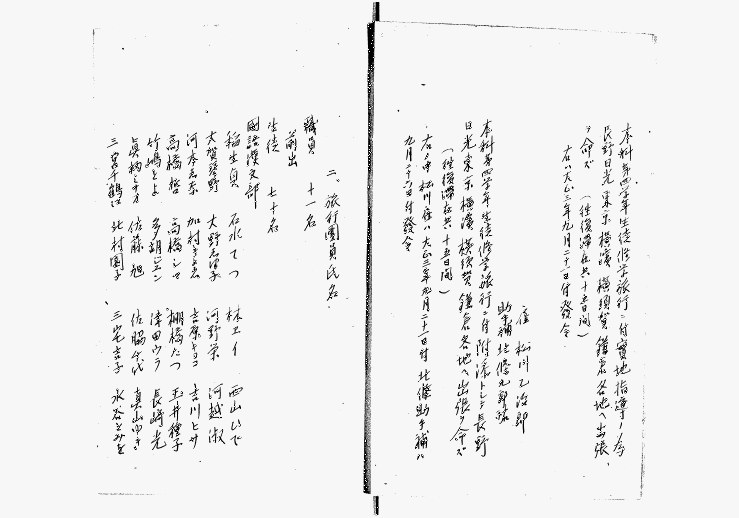 本科第四学年生徒修学旅行ニ付實地指導ノ為
長野日光東京橫濱橫須賀鎌倉各地ヘ出張
ヲ命ズ　(往復滞在共十五日間)
右ハ大正三年九月二十一日付發令
雇　松川乙治郎
助手補　北條九郎
本科第四学年生徒修学旅行ニ付附添トシテ長野
日光東京橫濱橫須賀鎌倉各地ヘ出張ヲ命ズ
(往復滞在共十五日間)
右ノ中松川雇ハ大正三年九月二十一日付北條助手補ハ
九月二十六日付發令
二、旅行團員氏名
職員　十一名
前出
生徒　七十名
國語漢文部
稲生貞　石水てつ　林エイ　西山ひで
大賀磐野　大野　河野栄　河越淑
河本　加村　吉原　吉川ヒサ
高橋哲　高橋シマ　棚橋たつ　玉井種子
竹嶋とよ　多胡　津田ウラ　長崎光
眞柄　佐藤旭　佐脇　真山ゆき
三宮千鶴江　北村園子　三宅吉子　水谷とみを